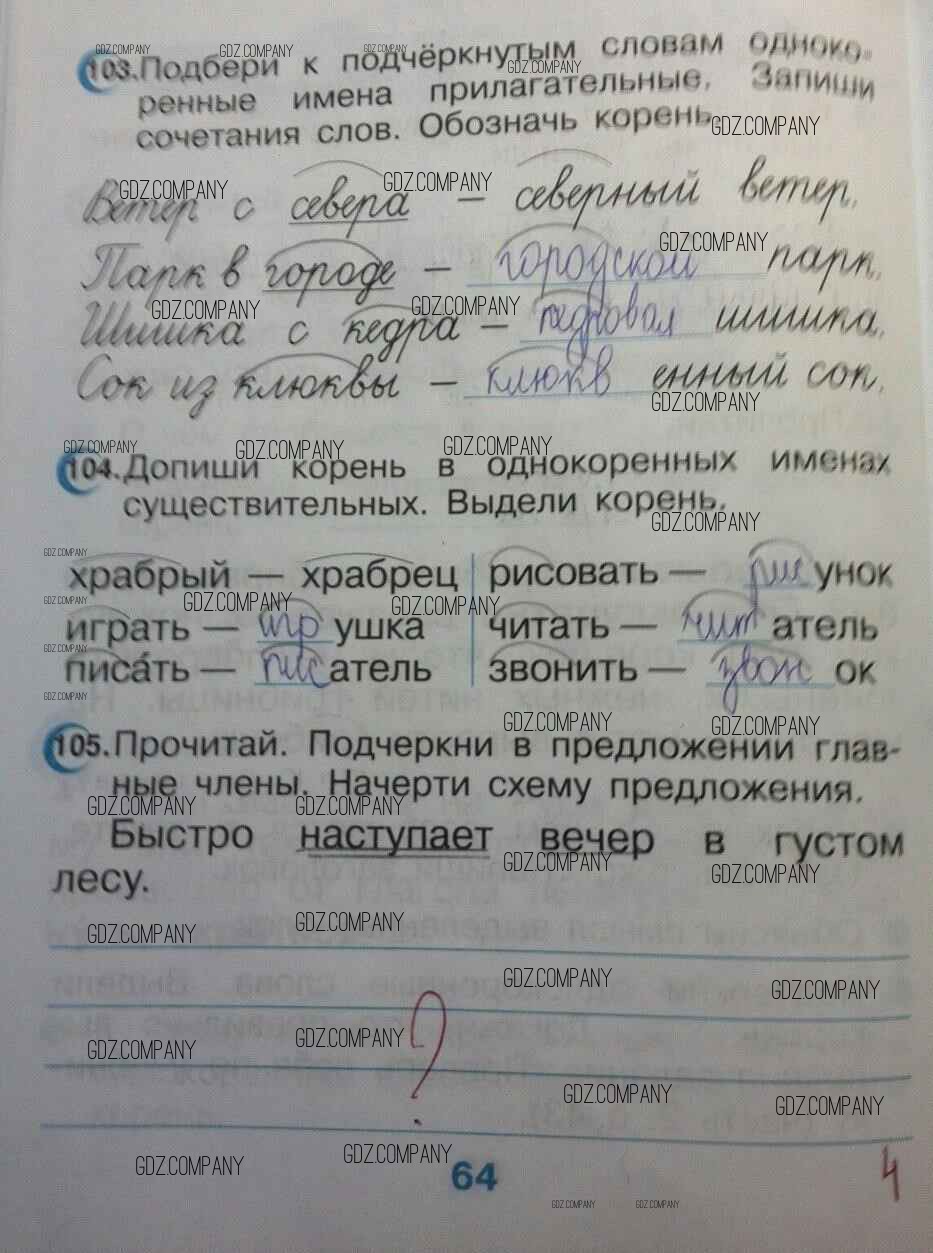 GDZ.COMPANY GDZ.COMPANY GDZ.COMPANY
103. Подбери к подчёркнутым словам одноко-
GDZ.COMPANY
ренные имена прилагательные. Запиши
сочетания слов. Обозначь корень.
GDZ.COMPANY
GDZ.COMPANY GDZ.COMPANY
Ветер с севера — северный ветер.
GDZ.COMPANY
Парк в городе — городской парк.
GDZ.COMPANY GDZ.COMPANY
Шишка с кедра — кедровая шишка.
Сок из клюквы — клюквенный сок.
GDZ.COMPANY
GDZ.COMPANY GDZ.COMPANY GDZ.COMPANY
104. Допиши корень в однокоренных именах
существительных. Выдели корень.
GDZ.COMPANY
GDZ.COMPANY
храбрый — храбрец рисовать — рисунок
GDZ.COMPANY GDZ.COMPANY GDZ.COMPANY
играть — игрушка читать — читатель
GDZ.COMPANY
писать — писатель звонить — звонок
GDZ.COMPANY
GDZ.COMPANY GDZ.COMPANY
105. Прочитай. Подчеркни в предложении глав-
ные члены. Начерти схему предложения.
GDZ.COMPANY GDZ.COMPANY
Быстро наступает вечер в густом
GDZ.COMPANY GDZ.COMPANY
лесу.
GDZ.COMPANY GDZ.COMPANY
GDZ.COMPANY GDZ.COMPANY
?
GDZ.COMPANY GDZ.COMPANY
GDZ.COMPANY GDZ.COMPANY
GDZ.COMPANY GDZ.COMPANY
64
4
GDZ.COMPANY GDZ.COMPANY